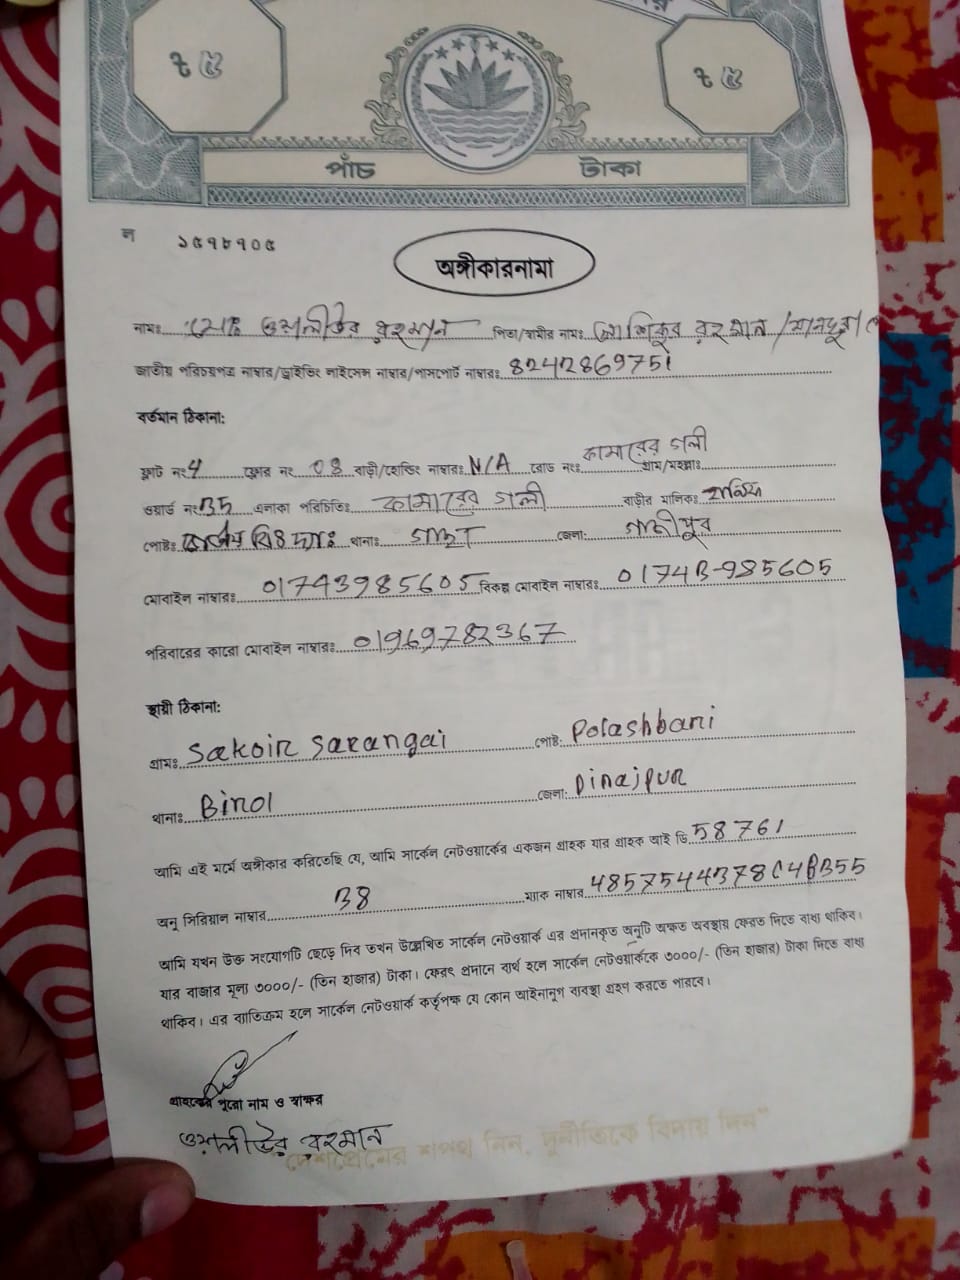 ৳ ৫ ৳ ৫
পাঁচ টাকা
ন ১৫৭৮৭০৫
অঙ্গীকারনামা
নামঃ মোঃ ওয়ালীউর রহমান পিতা/স্বামীর নামঃ রহমান /
জাতীয় পরিচয়পত্র নাম্বার/ড্রাইভিং লাইসেন্স নাম্বার/পাসপোর্ট নাম্বারঃ 8242869751
বর্তমান ঠিকানা:
ফ্লাট নং 4 ফ্লোর নং 03 বাড়ী/হোল্ডিং নাম্বারঃ N/A রোড নংঃ কামারের গলী গ্রাম/মহল্লাঃ
ওয়ার্ড নং 35 এলাকা পরিচিতিঃ কামারের গলী বাড়ীর মালিকঃ
পোষ্টঃ থানাঃ গাছা জেলাঃ গাজীপুর
মোবাইল নাম্বারঃ 01743985605 বিকল্প মোবাইল নাম্বারঃ 01743-985605
পরিবারের কারো মোবাইল নাম্বারঃ 01969782367
স্থায়ী ঠিকানা:
গ্রামঃ Sakoir Sarangai পোষ্ট: Polashbari
থানাঃ Birol জেলা: Dinajpur
আমি এই মর্মে অঙ্গীকার করিতেছি যে, আমি সার্কেল নেটওয়ার্কের একজন গ্রাহক যার গ্রাহক আই ডি 58761
অনু সিরিয়াল নাম্বার 38 ম্যাক নাম্বার 4857544378C4BB55
আমি যখন উক্ত সংযোগটি ছেড়ে দিব তখন উল্লেখিত সার্কেল নেটওয়ার্ক এর প্রদানকৃত অনুটি অক্ষত অবস্থায় ফেরত দিতে বাধ্য থাকিব।
যার বাজার মূল্য ৩০০০/- (তিন হাজার) টাকা। ফেরৎ প্রদানে ব্যর্থ হলে সার্কেল নেটওয়ার্ককে ৩০০০/- (তিন হাজার) টাকা দিতে বাধ্য
থাকিব। এর ব্যতিক্রম হলে সার্কেল নেটওয়ার্ক কর্তৃপক্ষ যে কোন আইনানুগ ব্যবস্থা গ্রহণ করতে পারবে।
গ্রাহকের পুরো নাম ও স্বাক্ষর
ওয়ালীউর রহমান
দেশপ্রেমের শপথ নিন, দুর্নীতিকে বিদায় দিন"